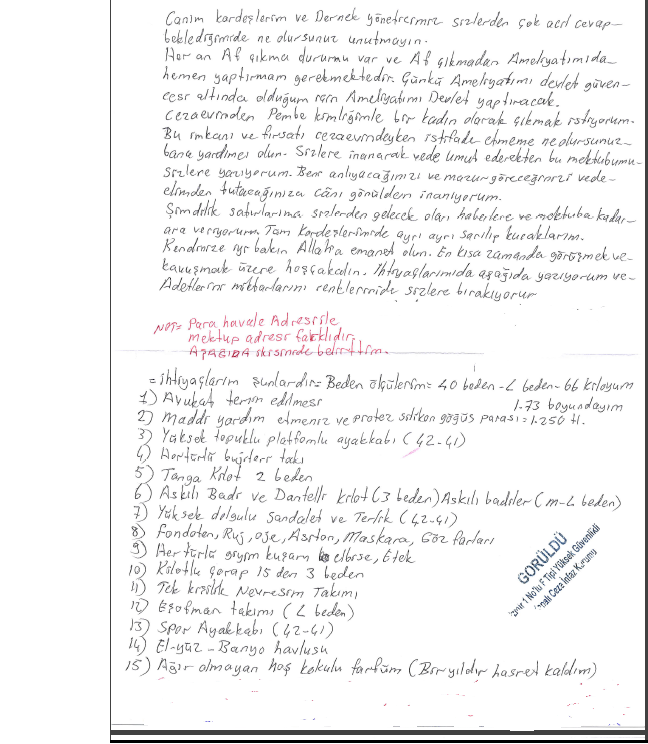 Canım kardeşlerim ve Dernek yöneticimiz sizlerden çok acil cevap-
beklediğimide ne olursunuz unutmayın.
Her an Af çıkma durumu var ve Af çıkmadan Ameliyatımıda-
hemen yaptırmam gerekmektedir. Çünkü Ameliyatımı devlet güven-
cesi altında olduğum için Ameliyatımı Devlet yaptıracak.
Cezaevinden Pembe kimliğimle bir kadın olarak çıkmak istiyorum.
Bu imkanı ve fırsatı cezaevindeyken istifade etmeme ne olursunuz-
bana yardımcı olun. Sizlere inanarak vede umut ederekten bu mektubumu-
sizlere yazıyorum. Beni anlıyacağınızı ve mazur göreceğinizi vede-
elimden tutacağınıza cânı gönülden inanıyorum.
Şimdilik satırlarıma sizlerden gelecek olan haberlere ve mektuba kadar-
ara veriyorum. Tüm Kardeşlerimide ayrı ayrı sarılıp kucaklarım.
Kendinize iyi bakın Allaha emanet olun. En kısa zamanda görüşmek ve-
kavuşmak üzere hoşçakalın. İhtiyaçlarımıda aşağıda yazıyorum ve-
Adetlerini miktarlarını renkleriniide sizlere bırakıyorum
NOT= Para havale Adresi ile
mektup adresi farklıdır.
AŞAĞIDA ikisinide belirttim.
= ihtiyaçlarım şunlardır= Beden ölçülerim= 40 beden-L beden-66 kiloyum
1.73 boyundayım
1) Avukat temin edilmesi
2) Maddi yardım etmeniz ve protez silikon göğüs parası=1.250 tl.
3) Yüksek topuklu platformlu ayakkabı (42-41)
4) Her türlü bujiteri takı
5) Tanga Kilot 2 beden
6) Askılı Badi ve Dantelli kilot (3 beden) Askılı badiler (m-L beden)
7) Yüksek dolgulu Sandalet ve Terlik (42-41)
8) Fondoten, Ruj, oje, Asiton, Maskara, Göz farları
9) Her türlü giyim kuşam elbise, Etek
10) Kilotlu çorap 15 den 3 beden
11) Tek kişilik Nevresim Takımı
12) Eşofman takımı (L beden)
13) Spor Ayakkabı (42-41)
14) El-yüz-Banyo havlusu
15) Ağır olmayan hoş kokulu farfüm (Bir yıldır hasret kaldım)
GÖRÜLDÜ
1 No'lu F Tipi Yüksek Güvenlikli
Ceza İnfaz Kurumu